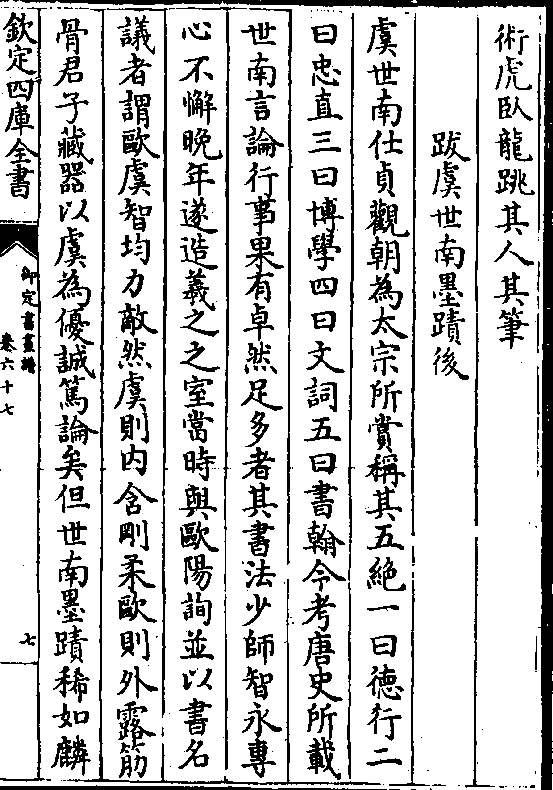 術虎臥龍跳其人其筆
跋虞世南墨蹟後
虞世南仕貞觀朝為太宗所賞稱其五絶一曰德行二
曰忠直三曰博學四曰文詞五曰書翰今考唐史所載
世南言論行事果有卓然足多者其書法少師智永專
心不懈晚年遂造羲之之室當時與歐陽詢並以書名
議者謂歐虞智均力敵然虞則内含剛柔歐則外露筋
骨君子藏器以虞為優誠篤論矣但世南墨蹟稀如麟
欽定四庫全書
御定書畫譜
卷六十七
七